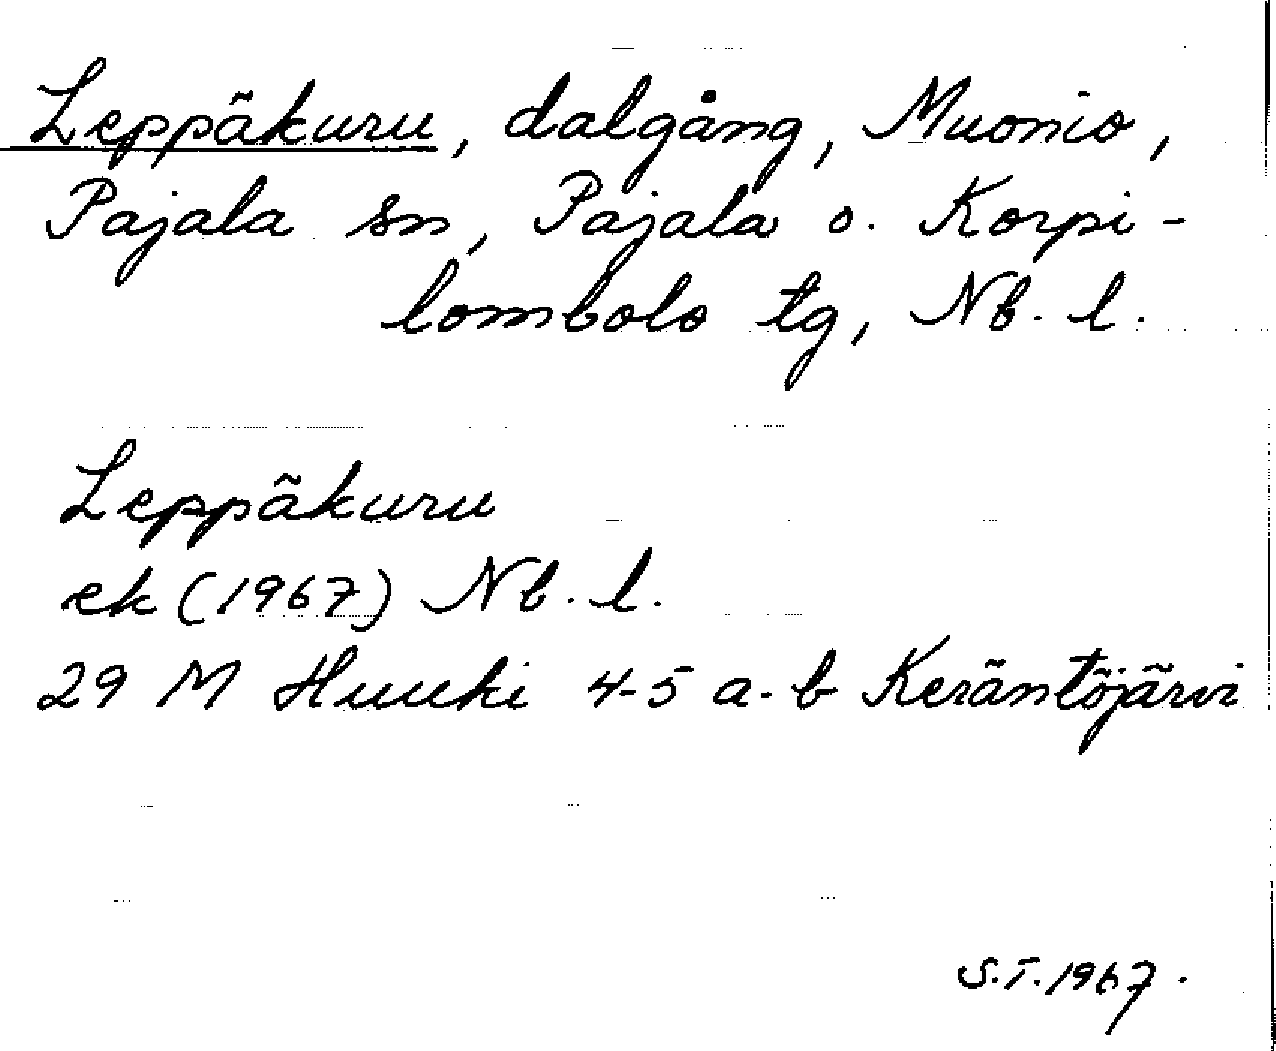 Leppäkuru, dalgång, Muonio,
Pajala sn, Pajala o. Korpi-
lombolo tg, Nb. l.
Leppäkuru
ek (1967) Nb. l.
29 M Huuki 4-5 a-b Keräntöjärvi
S.T. 1967.